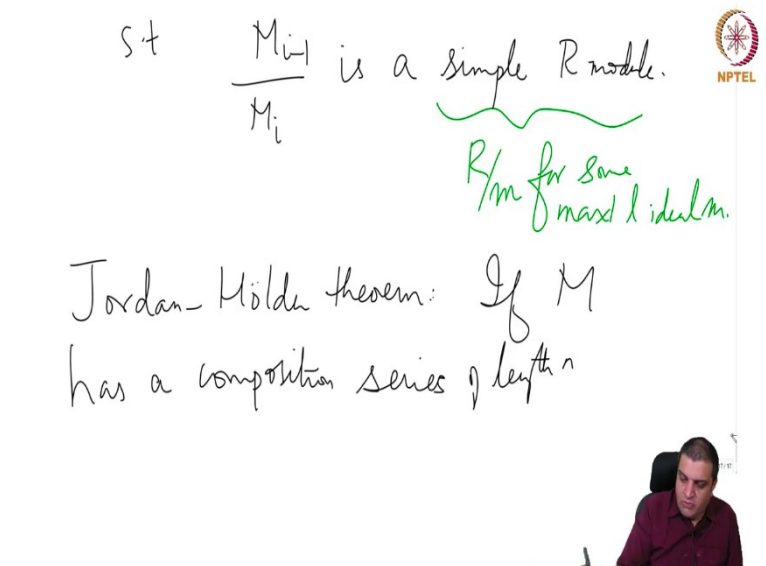 s.t M_{i-1}/M_i is a simple R module.
R/m for some
max'l ideal m.
Jordan-Hölder theorem: If M
has a composition series of length n
NPTEL